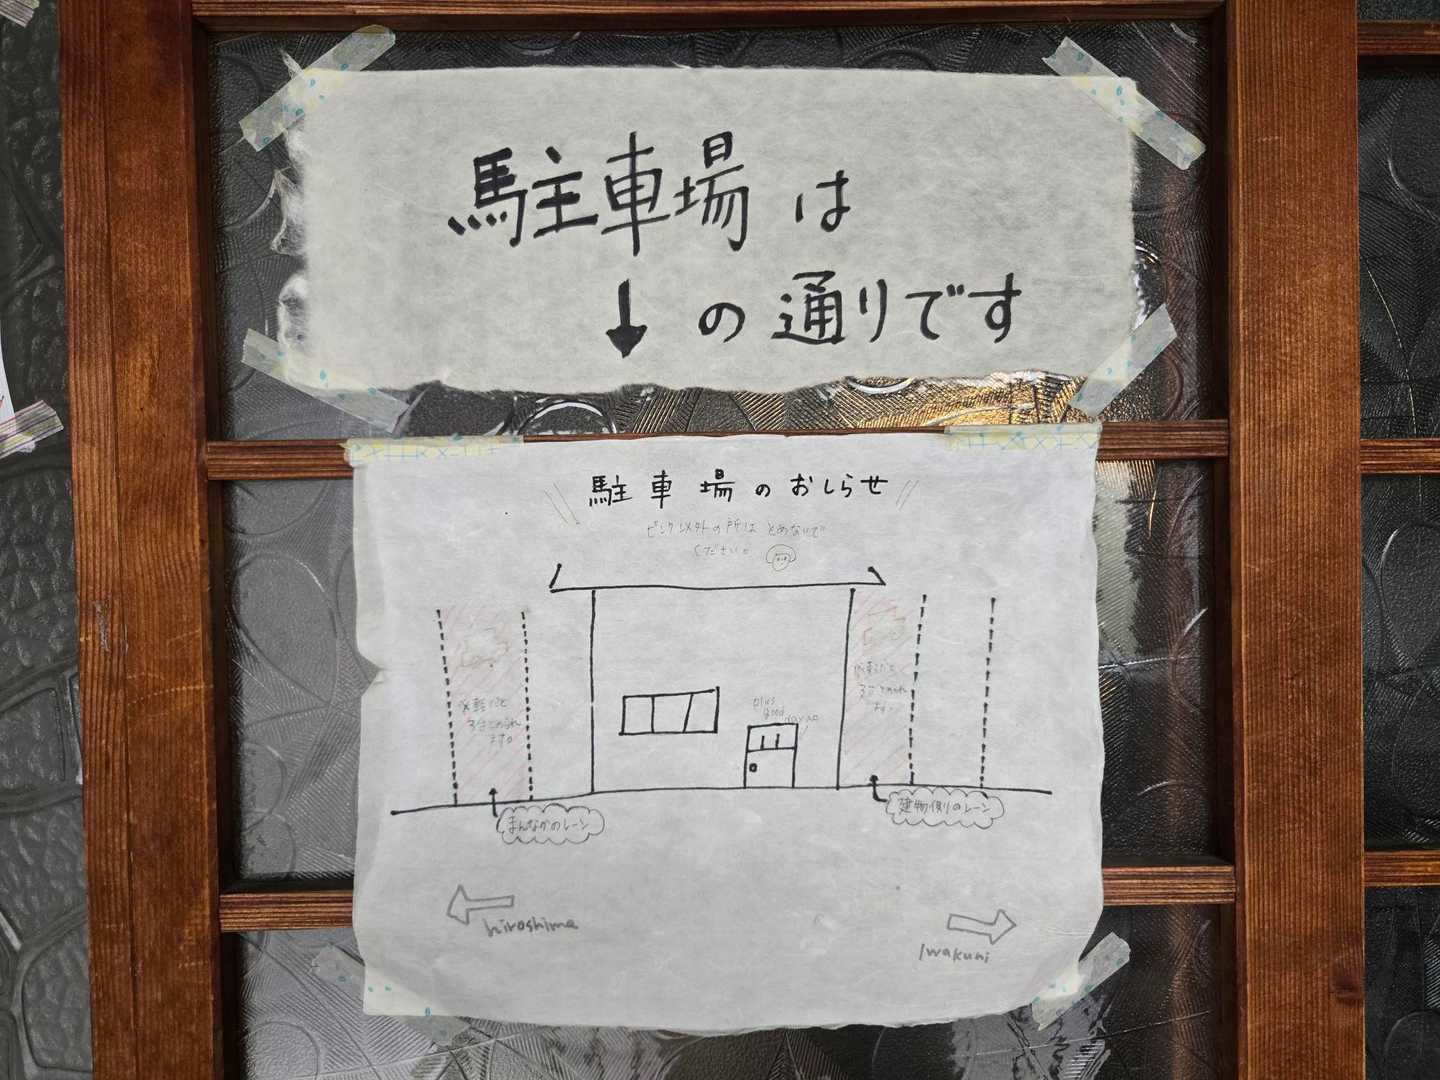 駐車場は
↓の通りです
駐車場のおしらせ
ピンク以外の所はとめないで
ください。
※軽だと
3台とめられ
ます。
plus
good
3台とめられ
ます。
まんなかのレーン
建物側のレーン
hiroshima
Iwakuni